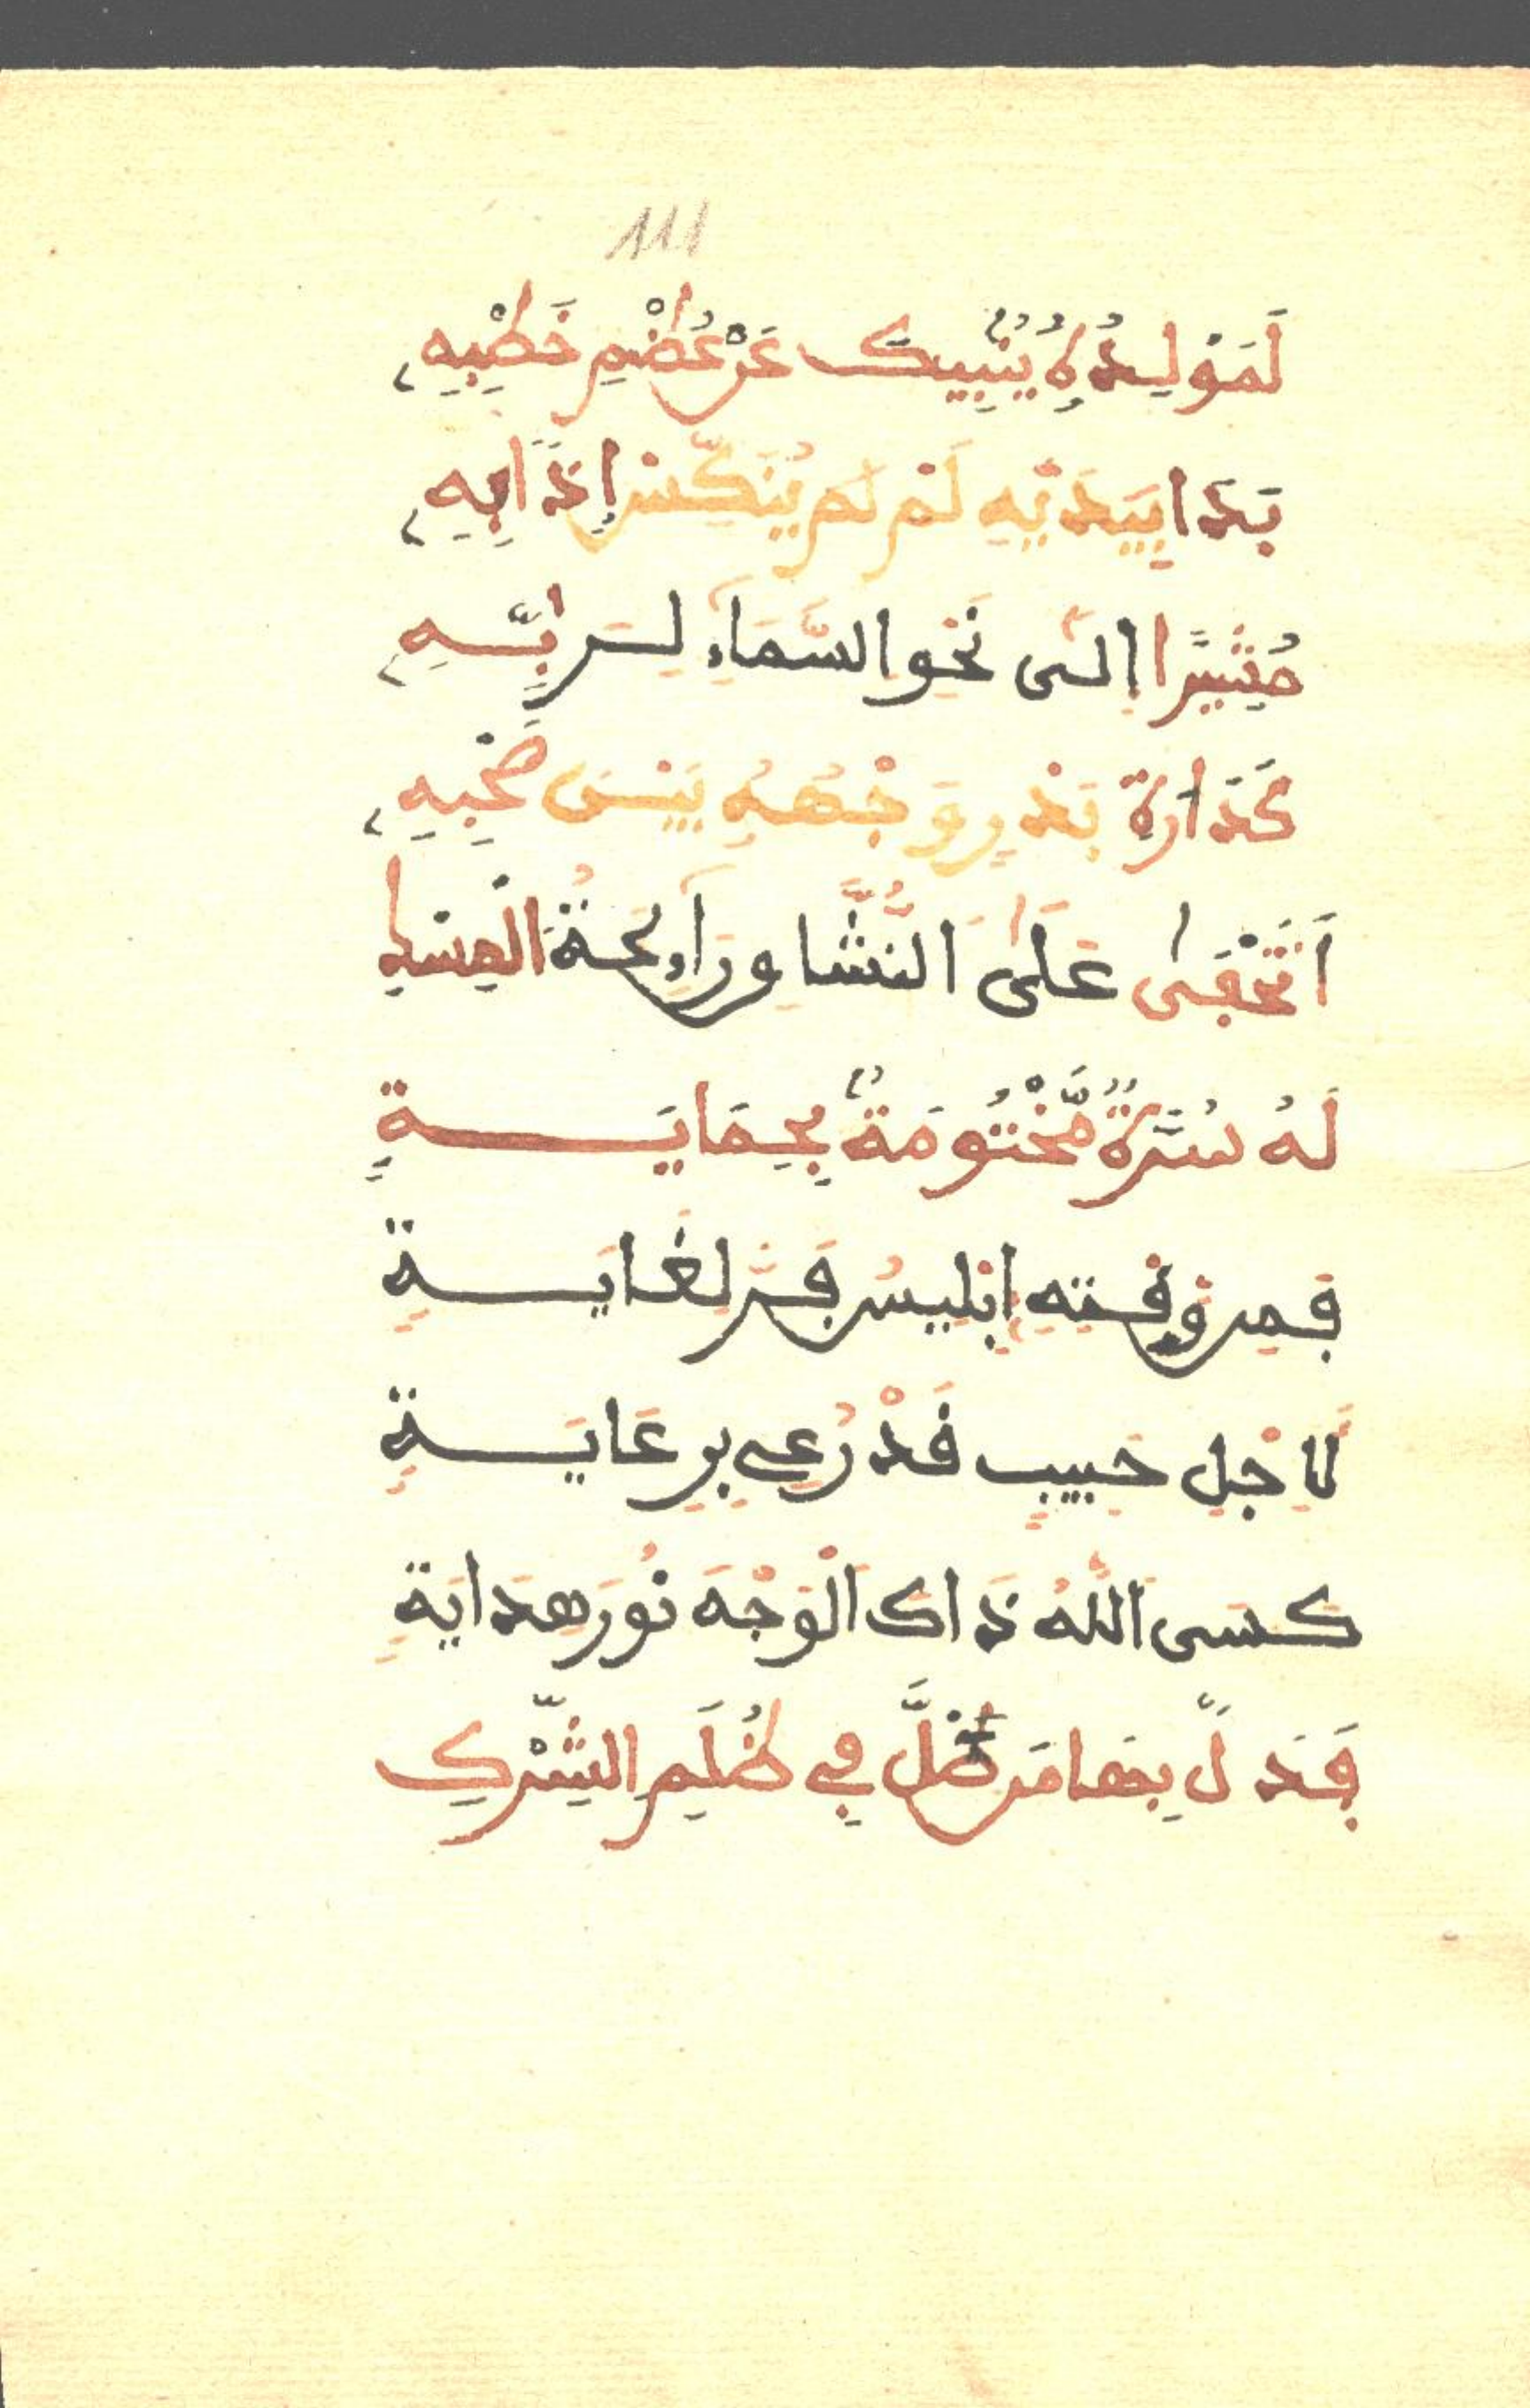 111
لَمَوْلِدُهُ يُنْبِيكَ عَنْ عُظْمِ خَطْبِهِ
بَدَا بِيَدَيْهِ لَمْ لَمْ يُنَكِّسْ إِذَابِهِ
مُشِيرًا إِلَى نَحْوِ السَّمَاءِ لِسِرِّ بِّهِ
كَدَارَةِ بَدْرٍ وَجْهُهُ بَيْنَ صَحْبِهِ
أَتَخْفَى عَلَى النُّشَّاوِ رَاءِحَةُ الْمِسْكِ
لَهُ سُرَّةٌ مَّخْتُومَةٌ بِحِمَايَةٍ
فمن وقته إبليسُ فَرَّ لغايةٍ
لِأَجْلِ حَبِيبٍ قَدْ رُعِي بِرِعَايَةٍ
كسى اللَّهُ ذَاكَ الْوَجْهَ نُورَ هدايةٍ
فَدَلَّ بِهَا مَن ضَلَّ فِي ظُلَمِ الشِّرْكِ